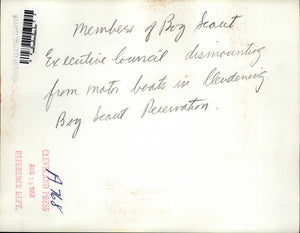 Members of Boy Scout
Executive Council dismounting
from motor boats in
Boy Scout Reservation.
A768
CLEVELAND PRESS
AUG 15 1958
REFERENCE DEPT.